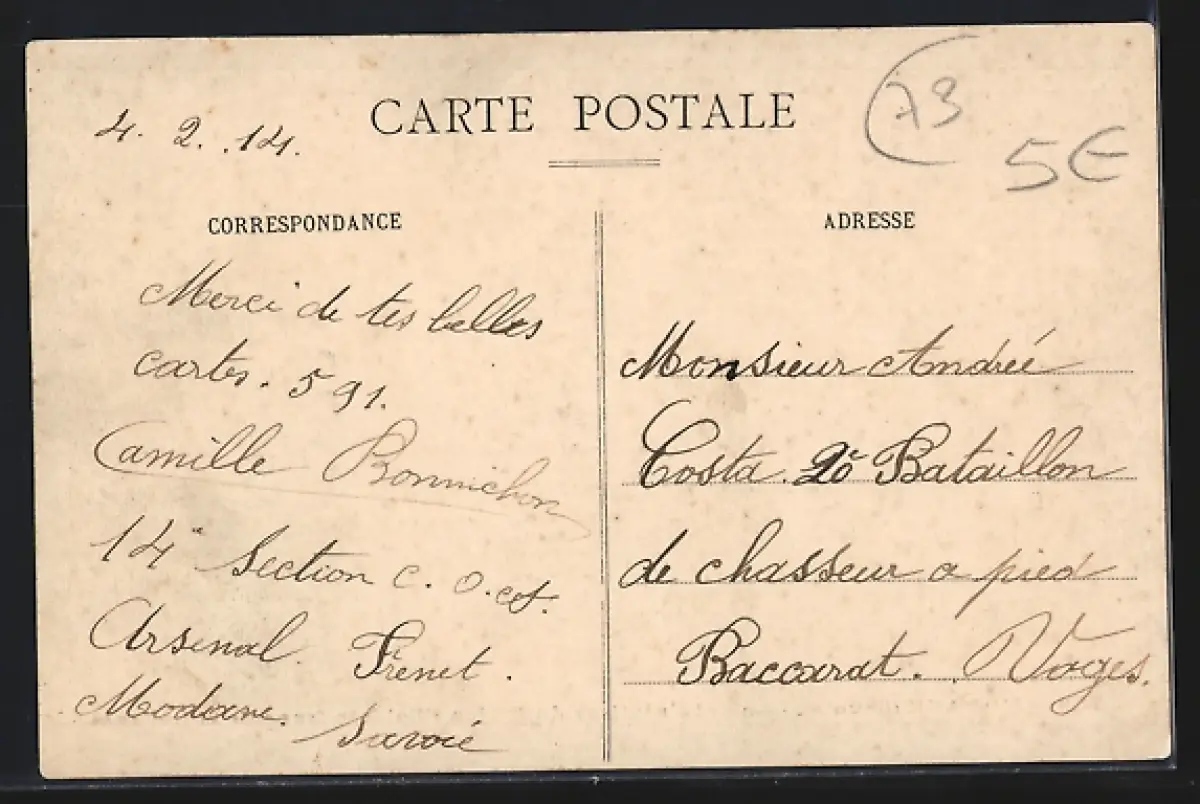 CARTE POSTALE
73
5€
4. 2. 14.
CORRESPONDANCE
Merci de tes belles
cartes. 591.
Camille Bonnichon
14e Section C. O. et.
Arsenal. Frenet.
Modane. Savoie
ADRESSE
Monsieur André
Costa. 20e Bataillon
de chasseur a pied
Baccarat. Voges.